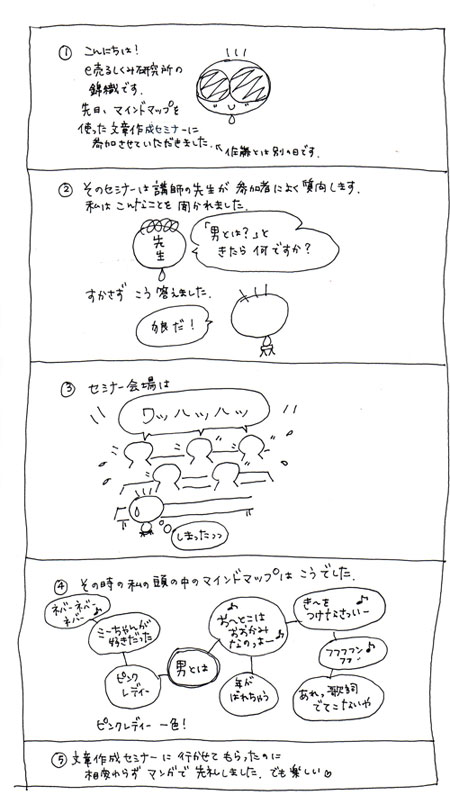 ① こんにちは!
e売るしくみ研究所の
錦織です。
先日、マインドマップを
使った文章作成セミナーに
参加させていただきました。
↖佐藤とは別の日です。
② そのセミナーは講師の先生が 参加者によく質問します。
私はこんなことを聞かれました。
先生
「男とは?」と
きたら何ですか?
すかさず こう答えました。
狼だ!
③ セミナー会場は
ワッハッハッ
しまったっっ
④ その時の私の頭の中のマインドマップは こうでした。
ネバーネバ
ネバー♪
ミーちゃんが
好きだった
ピンク
レディー
男とは
♪
おへとこは
おおかみ
なのよー♪
年が
ばれちゃう
きーを
つけなさいー♪
フフフフン
フフー♪
あれっ 歌詞
でてこないや
ピンクレディー 一色!
⑤ 文章作成セミナーに 行かせてもらったのに
相変わらず マンガで失礼しました。でも楽しい♡